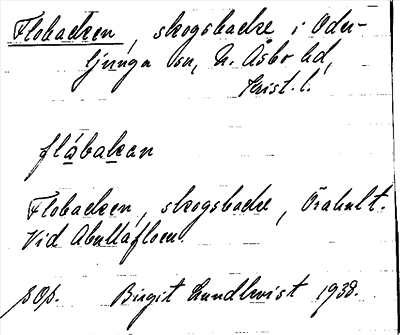 Flobacken, skogsbacke i Oder-
ljunga sn, N. Åsbo hd,
Krist. l.
flåbakan
Flobacken, skogsbacke, Örahult.
Vid Abullafloen.
Birgit Lundkvist 1938.